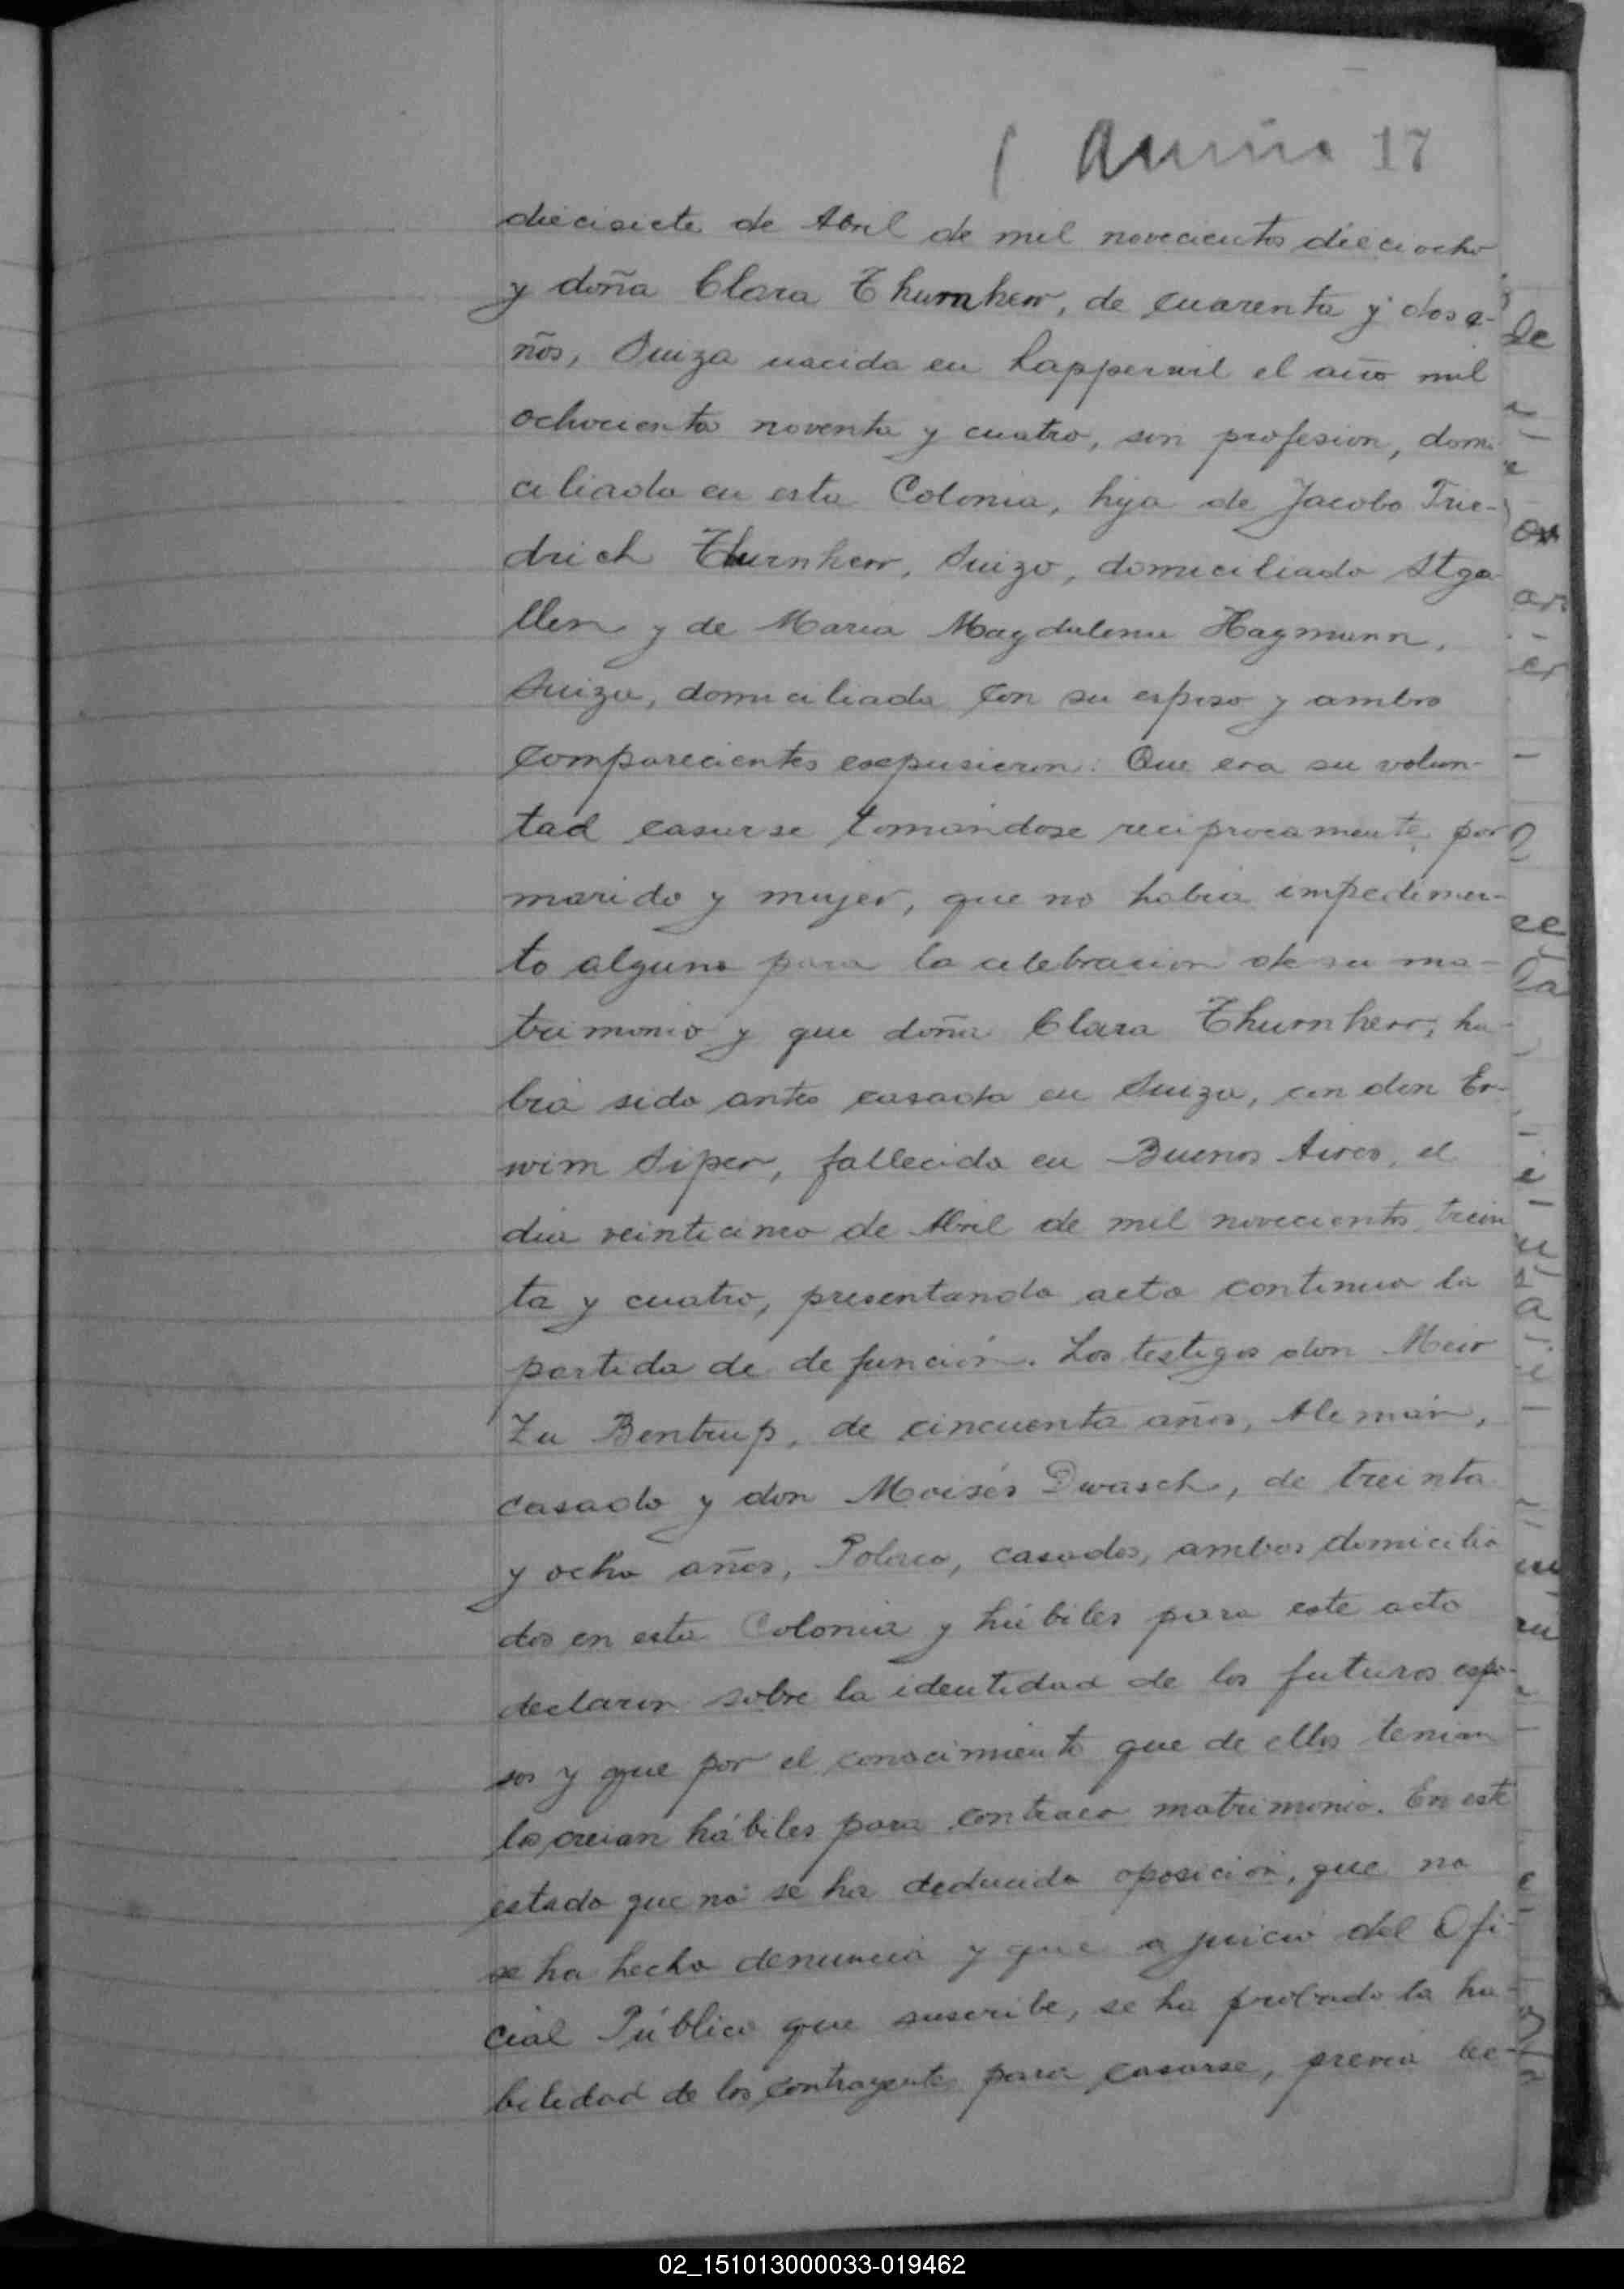 17
diecisiete de Abril de mil novecientos dieciocho
y doña Clara Thurnherr, de cuarenta y dos a-
ños, Suiza nacida en Rapperwil el año mil
ochocientos noventa y cuatro, sin profesion, domi
ciliada en esta Colonia, hija de Jacobo Frie-
drich Thurnherr, Suizo, domiciliado Stga-
llen y de Maria Magdalena Hagmann,
Suiza, domiciliada con su esposo y ambos
comparecientes expusieron: Que era su volun-
tad casarse tomándose reciprocamente por
marido y mujer, que no habia impedimen-
to alguno para la celebracion de su ma-
trimonio y que doña Clara Thurnherr, ha-
bia sido antes casada en Suiza, con don Er-
wim Siper, fallecido en Buenos Aires, el
dia veinticinco de Abril de mil novecientos trein
ta y cuatro, presentando acto continuo la
partida de defunción. Los testigos don Meir
Zu Bentrup, de cincuenta años, Alemán,
casado y don Moisés Dwasch, de treinta
y ocho años, Polaco, casados, ambos domicilia
dos en esta Colonia y hábiles para este acto
declaron sobre la identidad de los futuros espo-
sos y que por el conocimiento que de ellos tenian
los creian hábiles para contraer matrimonio. En este
estado que no se ha deducido oposición, que no
se ha hecho denuncia y que a juicio del Ofi-
cial Público que suscribe, se ha probado la ha-
bilidad de los contrayentes para casarse, previa lec-
02_151013000033-019462